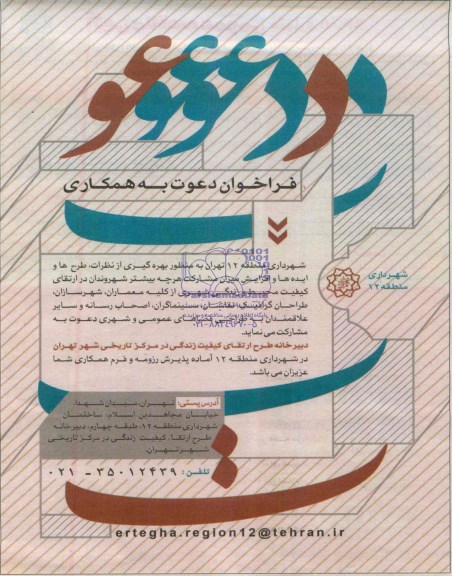 دعوت
فراخوان دعوت به همکاری
شهرداری
منطقه ۱۲
شهرداری منطقه ۱۲ تهران به منظور بهره گیری از نظرات، طرح ها و
ایده ها و افزایش میزان مشارکت هرچه بیشتر شهروندان در ارتقای
کیفیت محیط و زندگی شهری از کلیه معماران، شهرسازان،
طراحان گرافیک، نقاشان، سینماگران، اصحاب رسانه و سایر
علاقمندان به طراحی فضاهای عمومی و شهری دعوت به
مشارکت می نماید.
دبیرخانه طرح ارتقای کیفیت زندگی در مرکز تاریخی شهر تهران
در شهرداری منطقه ۱۲ آماده پذیرش رزومه و فرم همکاری شما
عزیزان می باشد.
۰۲۱-۸۸۳۴۹۶۷۰-۵
آدرس پستی: تهران، میدان شهدا،
خیابان مجاهدین اسلام، ساختمان
شهرداری منطقه ۱۲، طبقه چهارم، دبیرخانه
طرح ارتقاء کیفیت زندگی در مرکز تاریخی
شهر تهران.
تلفن: ۳۵۰۱۲۴۳۹ - ۰۲۱
ertegha.region12@tehran.ir